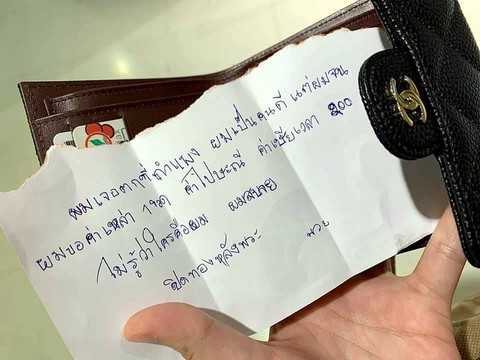 ผมเจอตกที่กำแพง ผมเป็นคนดี แต่ผมจน
ผมขอค่าเหล่า 1ขวด ค่าไปรษณี ค่าเสียเวลา 200
ไม่รู้ว่าใครคือผม ผมสบาย
ปิดทองหลังพระ